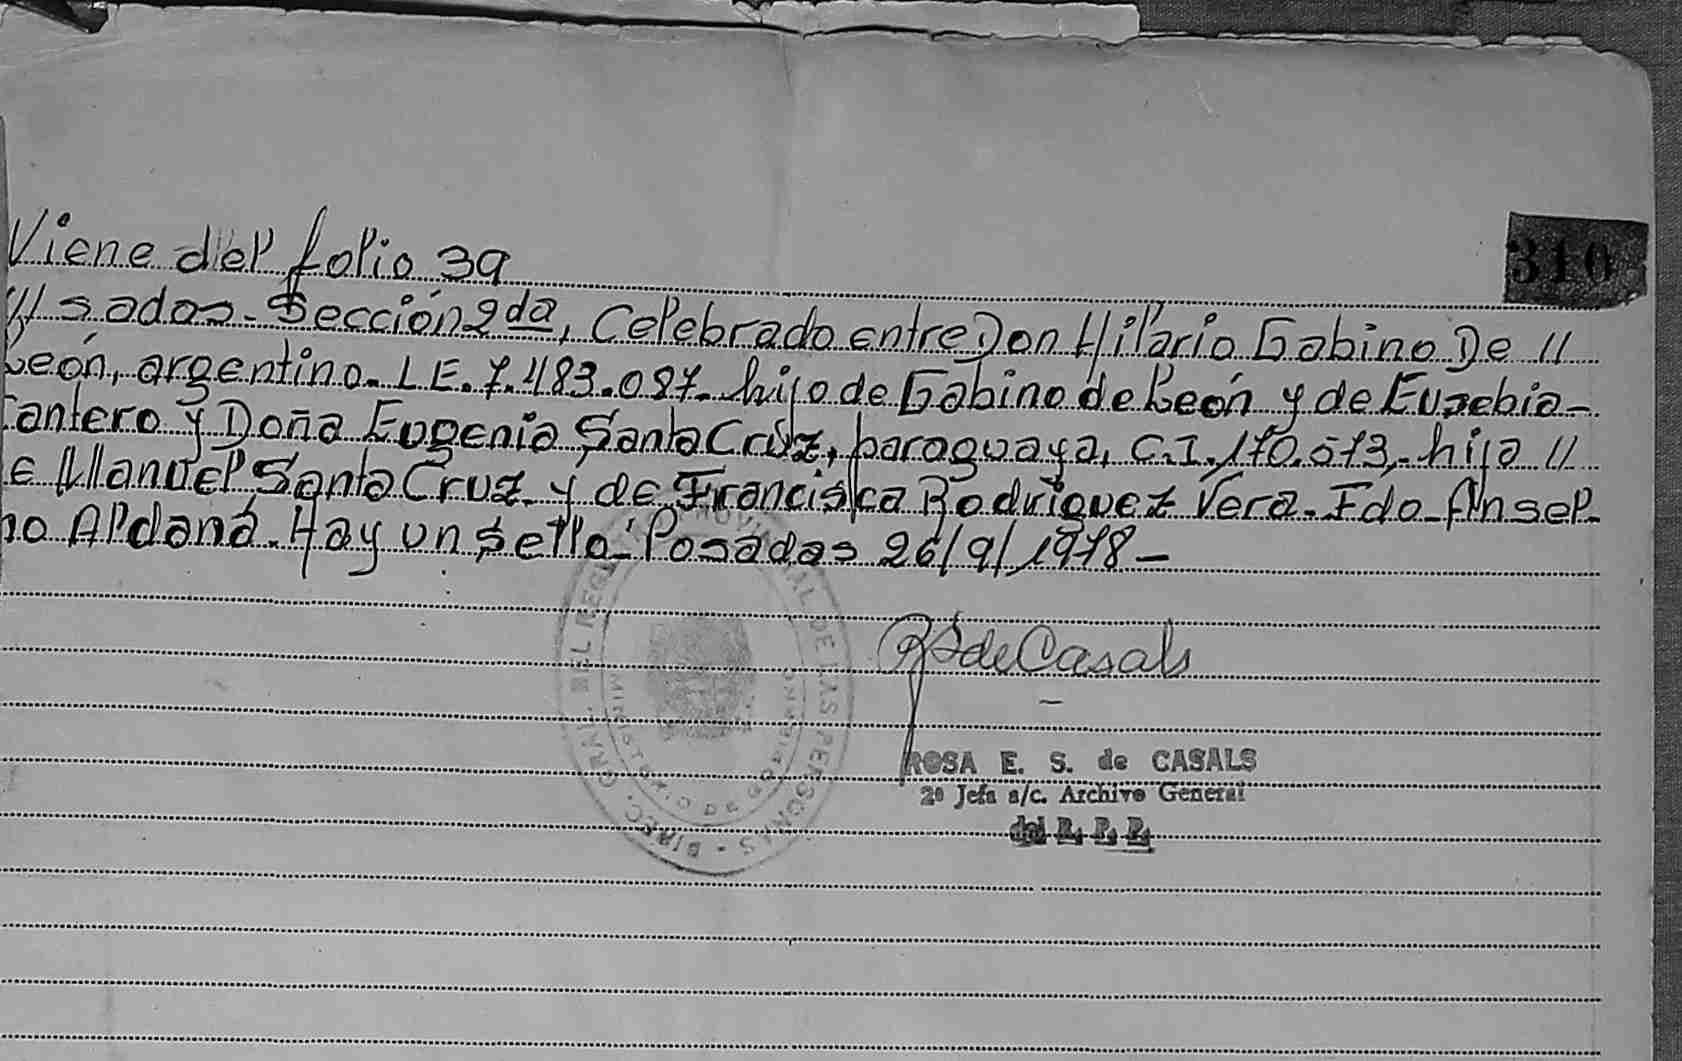 310
Viene del folio 39
// sadas - Sección 2da, Celebrado entre Don Hilario Gabino De //
León, argentino. L E. 7.483.087. hijo de Gabino de León y de Eusebia -
antero y Doña Eugenia Santa Cruz, paraguaya, C.I. 170.573, - hija //
e Manuel Santa Cruz y de Francisca Rodriguez Vera. Fdo. Ansel-
mo Aldaná. Hay un sello. Posadas 26/9/1978 -
DIREC. GRAL. DEL REG PROVINCIAL DE LAS PERSONAS
MINISTERIO DE GOBIERNO
RS de Casals
ROSA E. S. de CASALS
2ª Jefa a/c. Archivo General
del R. P. P.